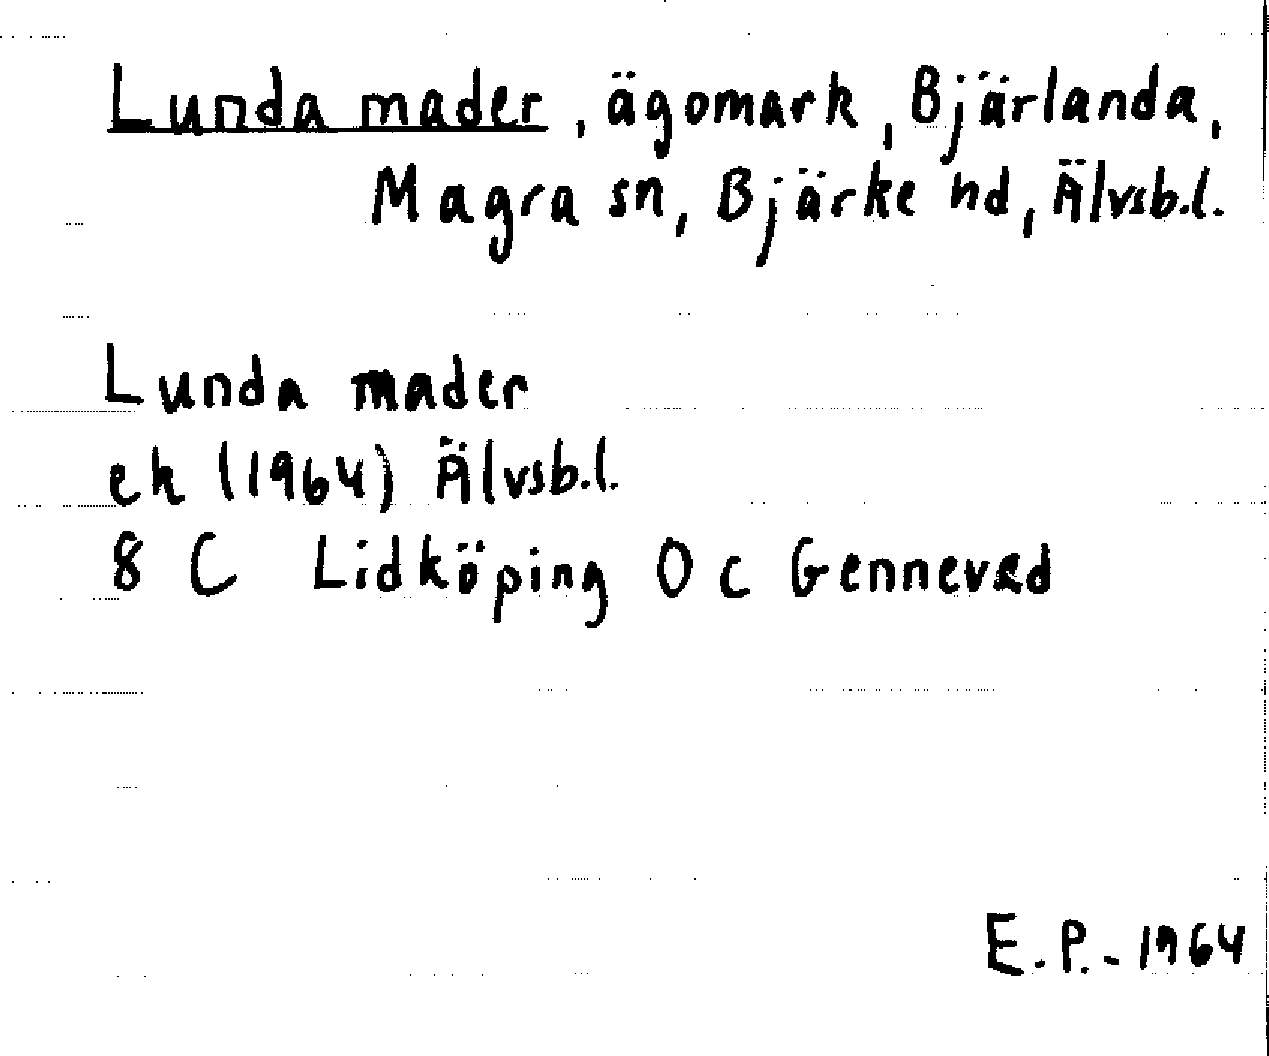 Lunda mader, ägomark, Bjärlanda,
Magra sn, Bjärke hd, Älvsb.l.
Lunda mader
ek (1964) Älvsb.l.
8 C Lidköping O c Genneved
E.P. - 1964